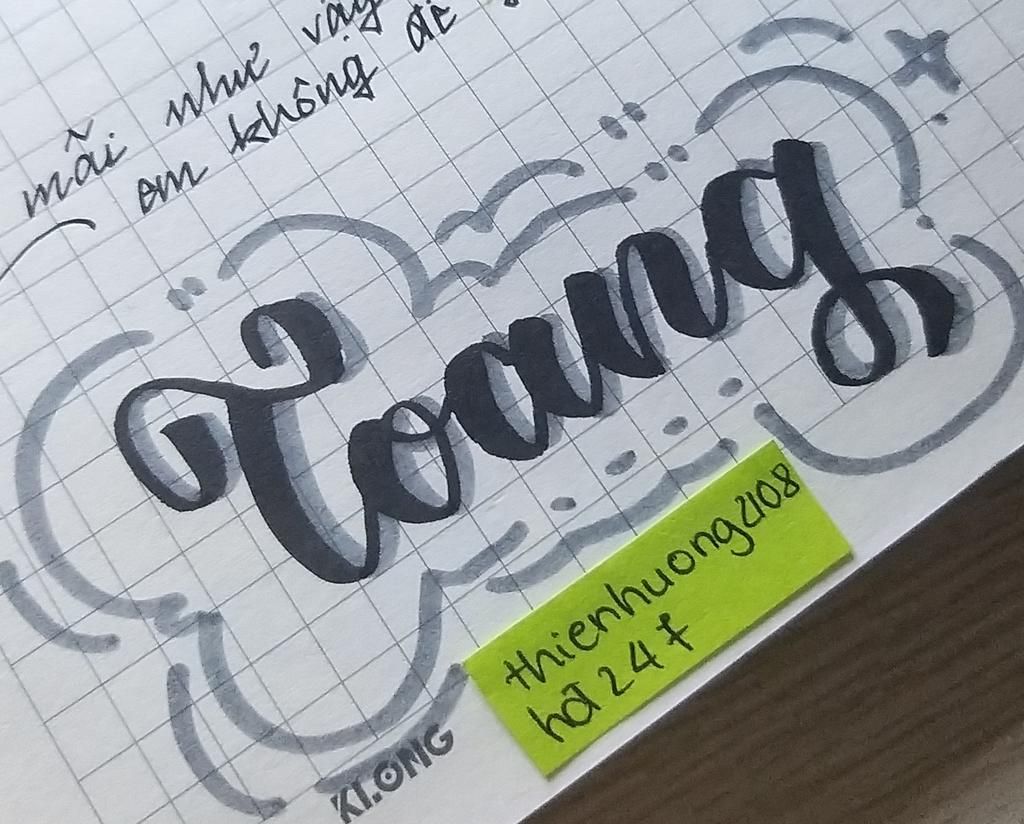 mãi như vậy
em không để
Toang
thienhuong2108
hđ247
KLONG